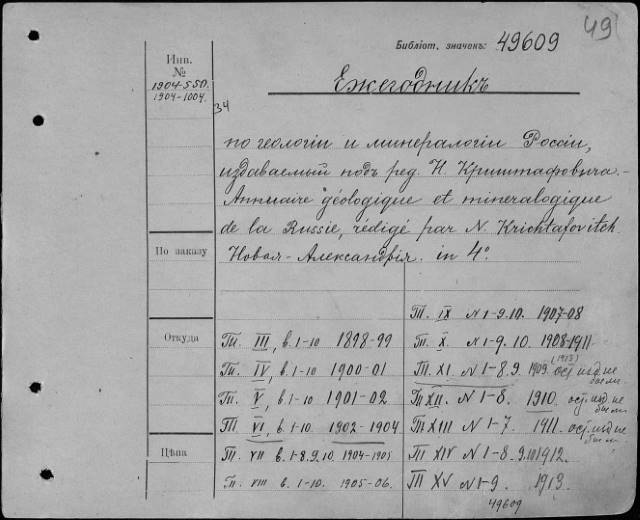 49
Библіот. значекъ: 49609
Инв.
№
1904-550.
1904-1004.
34
Ежегодникъ
по геологіи и минералогіи Россіи,
издаваемый подъ ред. Н. Криштафовича.-
Annuaire géologique et mineralogique
de la Russie, rédigé par N. Krichtafovitch.
Новая-Александрія. in 4°.
По заказу
Откуда
Цѣна
Т. III, в. 1-10 1898-99
Т. IV, в. 1-10 1900-01
Т. V, в. 1-10 1901-02
Т. VI, в. 1-10 1902-1904
Т. VII в. 1-8.9.10. 1904-1905
Т. VIII в. 1-10. 1905-06.
Т. IX N 1-9.10. 1907-08
Т. X. N 1-9.10. 1908-1911
(1913)
Т. XI. N 1-8.9. 1909. ост. изд. не были
Т. XII. N 1-8. 1910. ост. изд. не были
Т XIII N 1-7. 1911. ост. изд. не были
Т XIV N 1-8.9.10 1912.
Т XV N 1-9. 1913.
49609